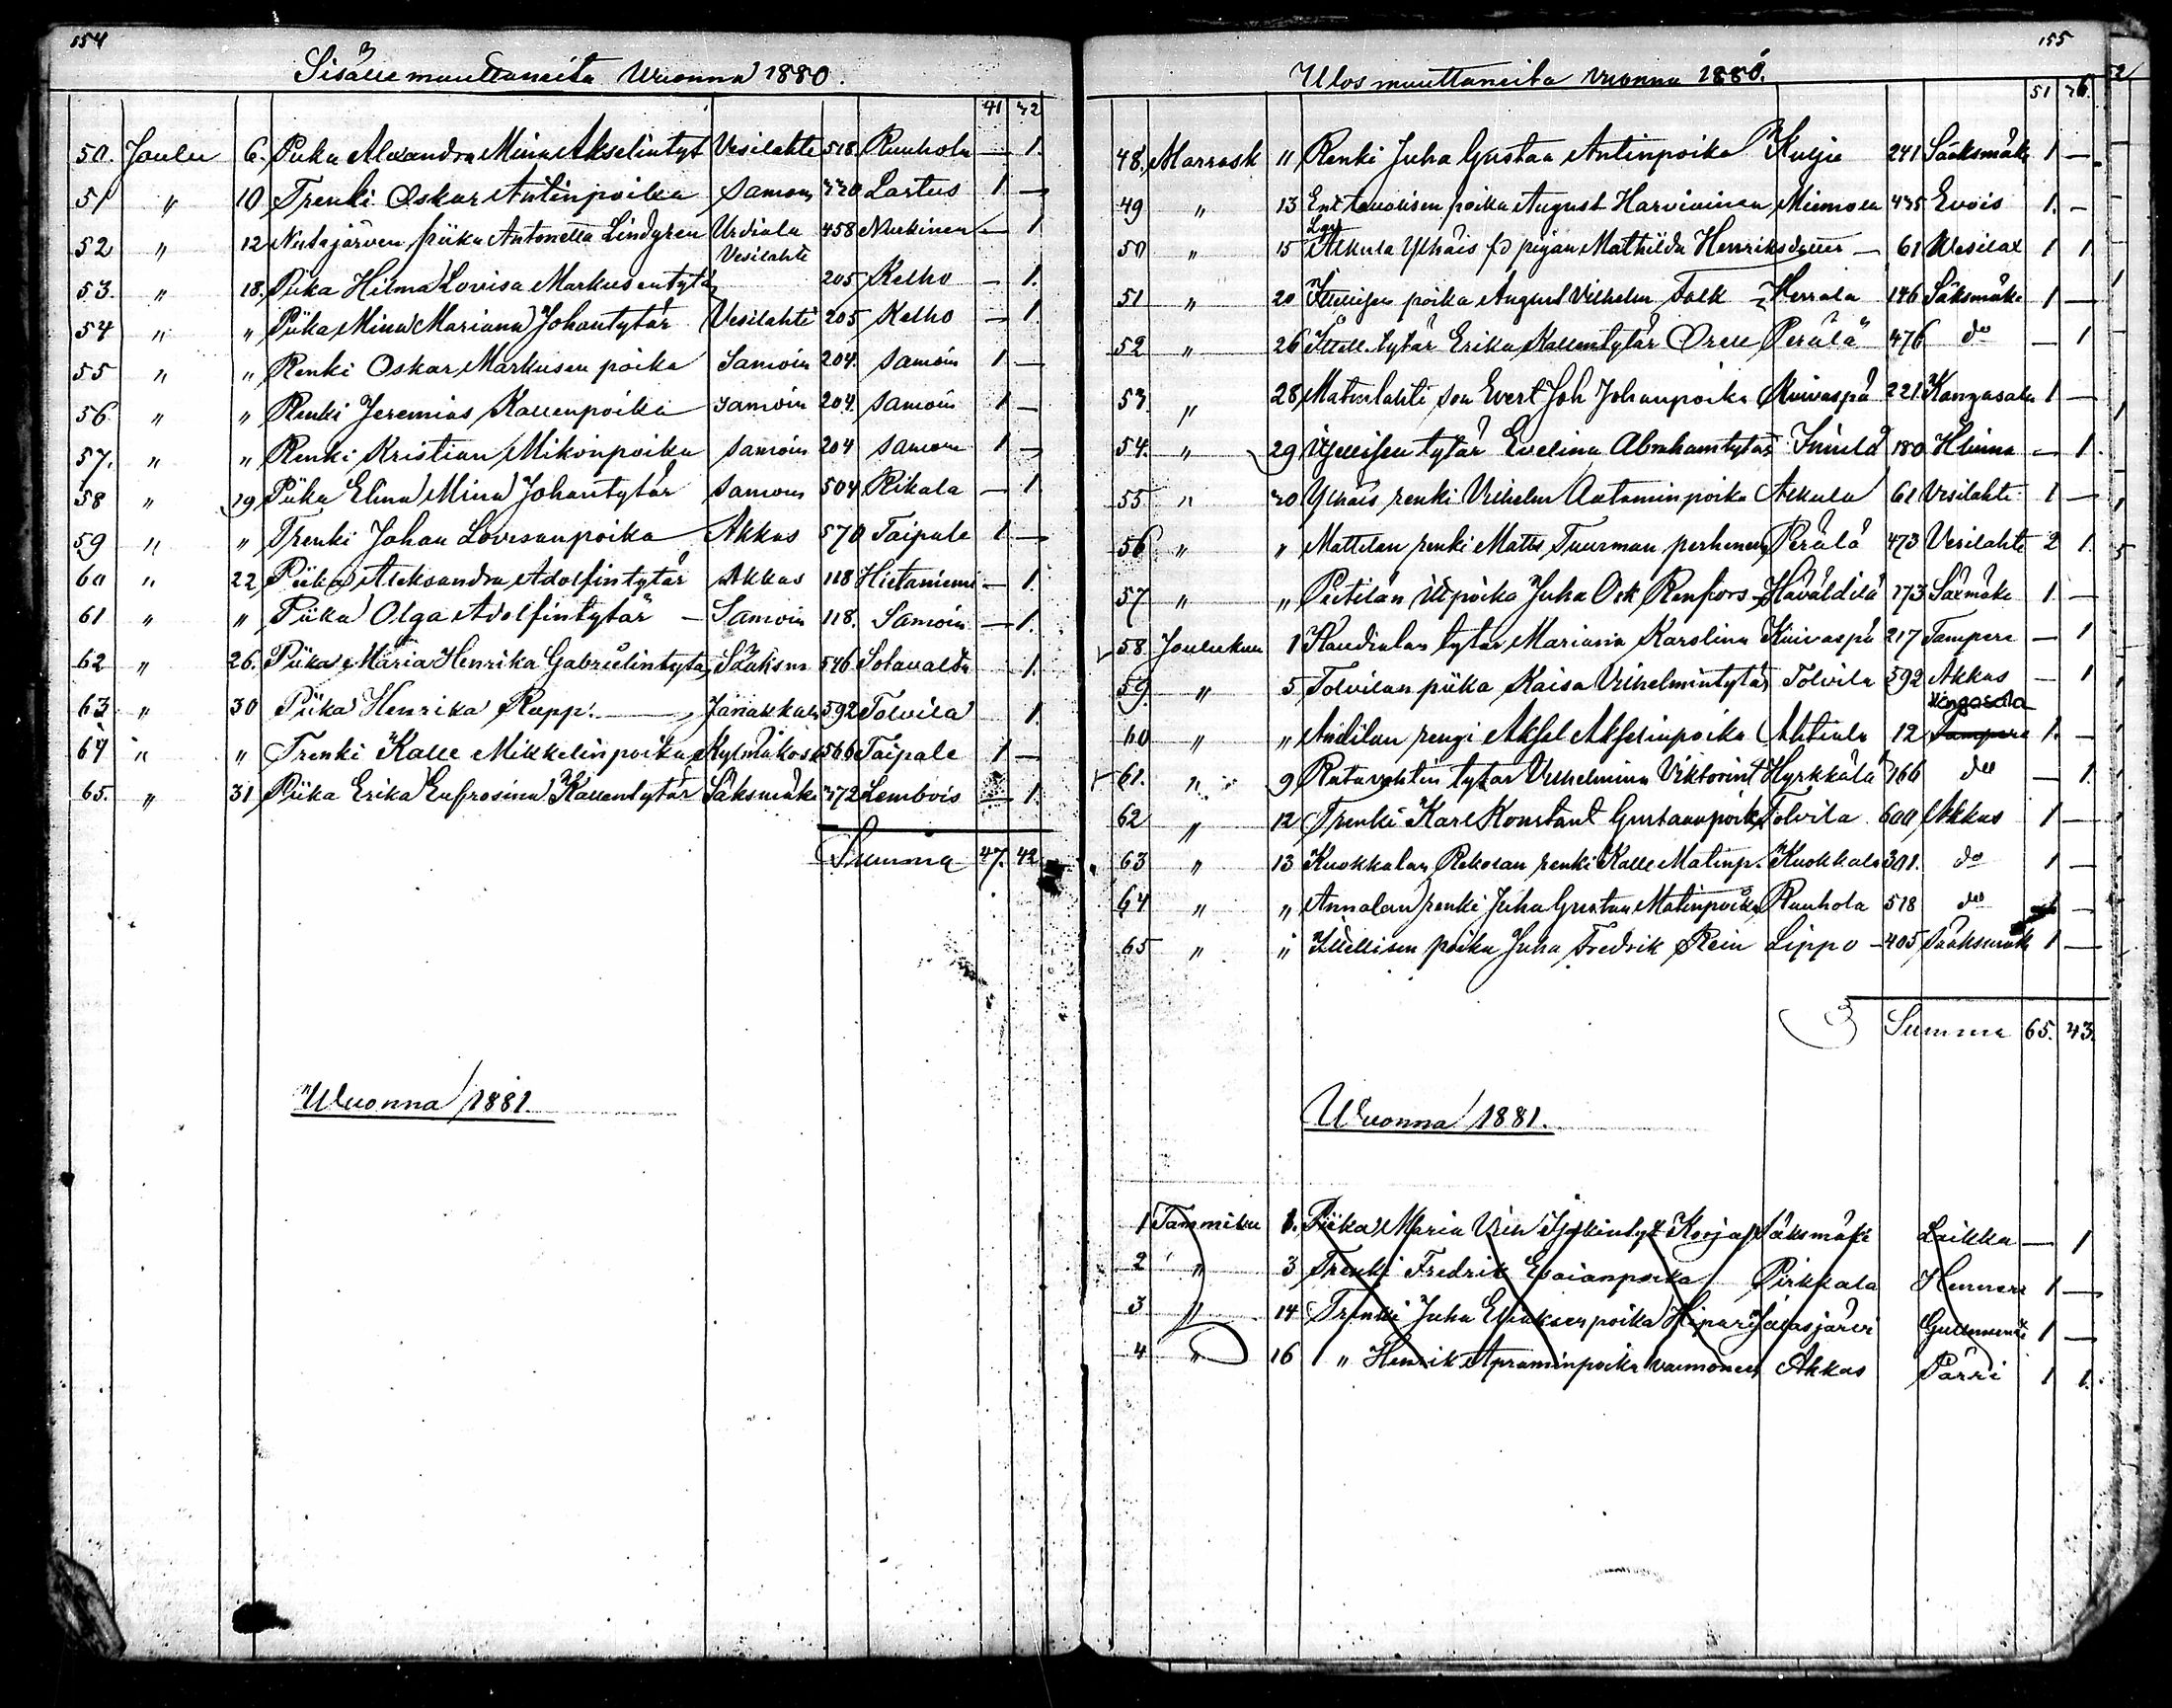 154
Sisälle muuttaneita Wuonna 1880.
41 42
50. Joulu 6. Piika Alexandra Mina Akselintyt Vesilahte 518. Ruuhola — 1.
51 " 10 Trenki Oskar Antinpoika Samoin 220 Lartus 1 —
52 " 12 Nutajärven piika Antonetta Lindgren Urdiala 458 Nurkinen — 1
Vesilahti
53. " 18. Piika Hilma Lovisa Markusentytär 205 Kelho — 1.
54 " " Piika Mina Mariana Johantytär Vesilahti 205 Kelho — 1
55 " " Renki Oskar Markusen poika Samoin 204. samoin 1 —
56. " " Renki Jeremias Kallenpoika samoin 204. samoin 1 —
57. " " Renki Kristian Mikonpoika samoin 204 samoin 1 —
58 " 19 Piika Elina Mina Johantytär samoin 504 Rikala — 1
59 " " Trenki Johan Lovisanpoika Akkas 570 Taipale 1 —
60 " 22 Piika Aleksandra Adolfintytär Akkas 118 Hietaniemi — 1.
61 " " Piika Olga Adolfintytär — Samoin 118. Samoin — 1.
62 " 26. Piika Maria Henrika Gabrielintytär Sääksm 546 Sotavalta 1.
63 " 30 Piika Henrika Rapp. — Janakkala 592 Tolvila 1.
64 " " Trenki Kalle Mikkelinpoika Kylmäkoski 566 Taipale 1 —
65. " 31 Piika Erika Eufrosina Kallentytär Säksmäki 372 Lembois — 1.
Summa 47. 42
Wuonna 1881.
155
Ulosmuuttaneita vuonna 1880.
51 36.
48. Marrask 11 Renki Juha Gustaa Antinpoika Kulju 241 Sääksmäki 1 —
49 " 13 poika August Harvivinen 435 Evois 1. —
50 " 15 Alkula Ylhäis pigan Mathilda Henriksdotter — 61 Wesilax 1 1
51 " 20 Itsellisen poika August Vilhelm Falk Herrala 146 Säksmäki 1 —
52 " 26 Itsell. tytär Erika Kallentytär Orell Perälä 476 do — 1
53 " 28 Matinlahti son Evert Joh Johanpoika Kuivaspä 221. Kangasala 1 —
54. " 29 Itsellisen tytär Evelina Abrahamtytär Innilä 180 — 1.
55 " 30 Ylhäis renki Vilhelm Aataminpoika Alkula 61 Vesilahti 1 —
56 " " Mattilan renki Matts Tuurman perhenen Perälä 473 Vesilahti 2 1.
57 " " Pietilän poika Juha Osk Renfors Haváldilä 173 Säxmäki 1. —
58. Joulukuu 1 Haudialan tytär Mariana Karolina Kuivaspä 217 Tampere — 1
59. " 5 Tolvilan piika Kaisa Vilhelmintytär Tolvila 592 Akkas — 1
Kangasala
60 " " Andilan rengi Aksel Akselinpoika Ahtiala 12 Tampere 1. —
61. " 9 tytär Vilhelmina Viktorint Hyrkkälä 166 do — 1.
62 " 12 Trenki Karl Konstant Gustaanpoika Tolvila 600 Akkas 1 —
63 " 13 Kuokkalan Rekolan renki Kalle Matinp. Kuokkala 301. do 1 —
64 " " Annalan renki Juha Gustaa Matinpoika Ruuhola 518 do 1 —
65 " " Itsellisen poika Juha Fredrik Rein Lippo — 405 Sääksmäk 1 —
Summa 65. 43.
Wuonna 1881.
1 Tammiku 1. Piika Maria Vilh Korja Säksmäki Laikka — 1
2 " 3 Trenki Fredrik Esaianpoika Pirkkala Henneri 1 —
3 " 14 Trenki Juha Eriksenpoika Jalasjärvi 1 —
4 " 16 " Henrik Apraminpoika vaimoneen Akkas Pärri 1 1.